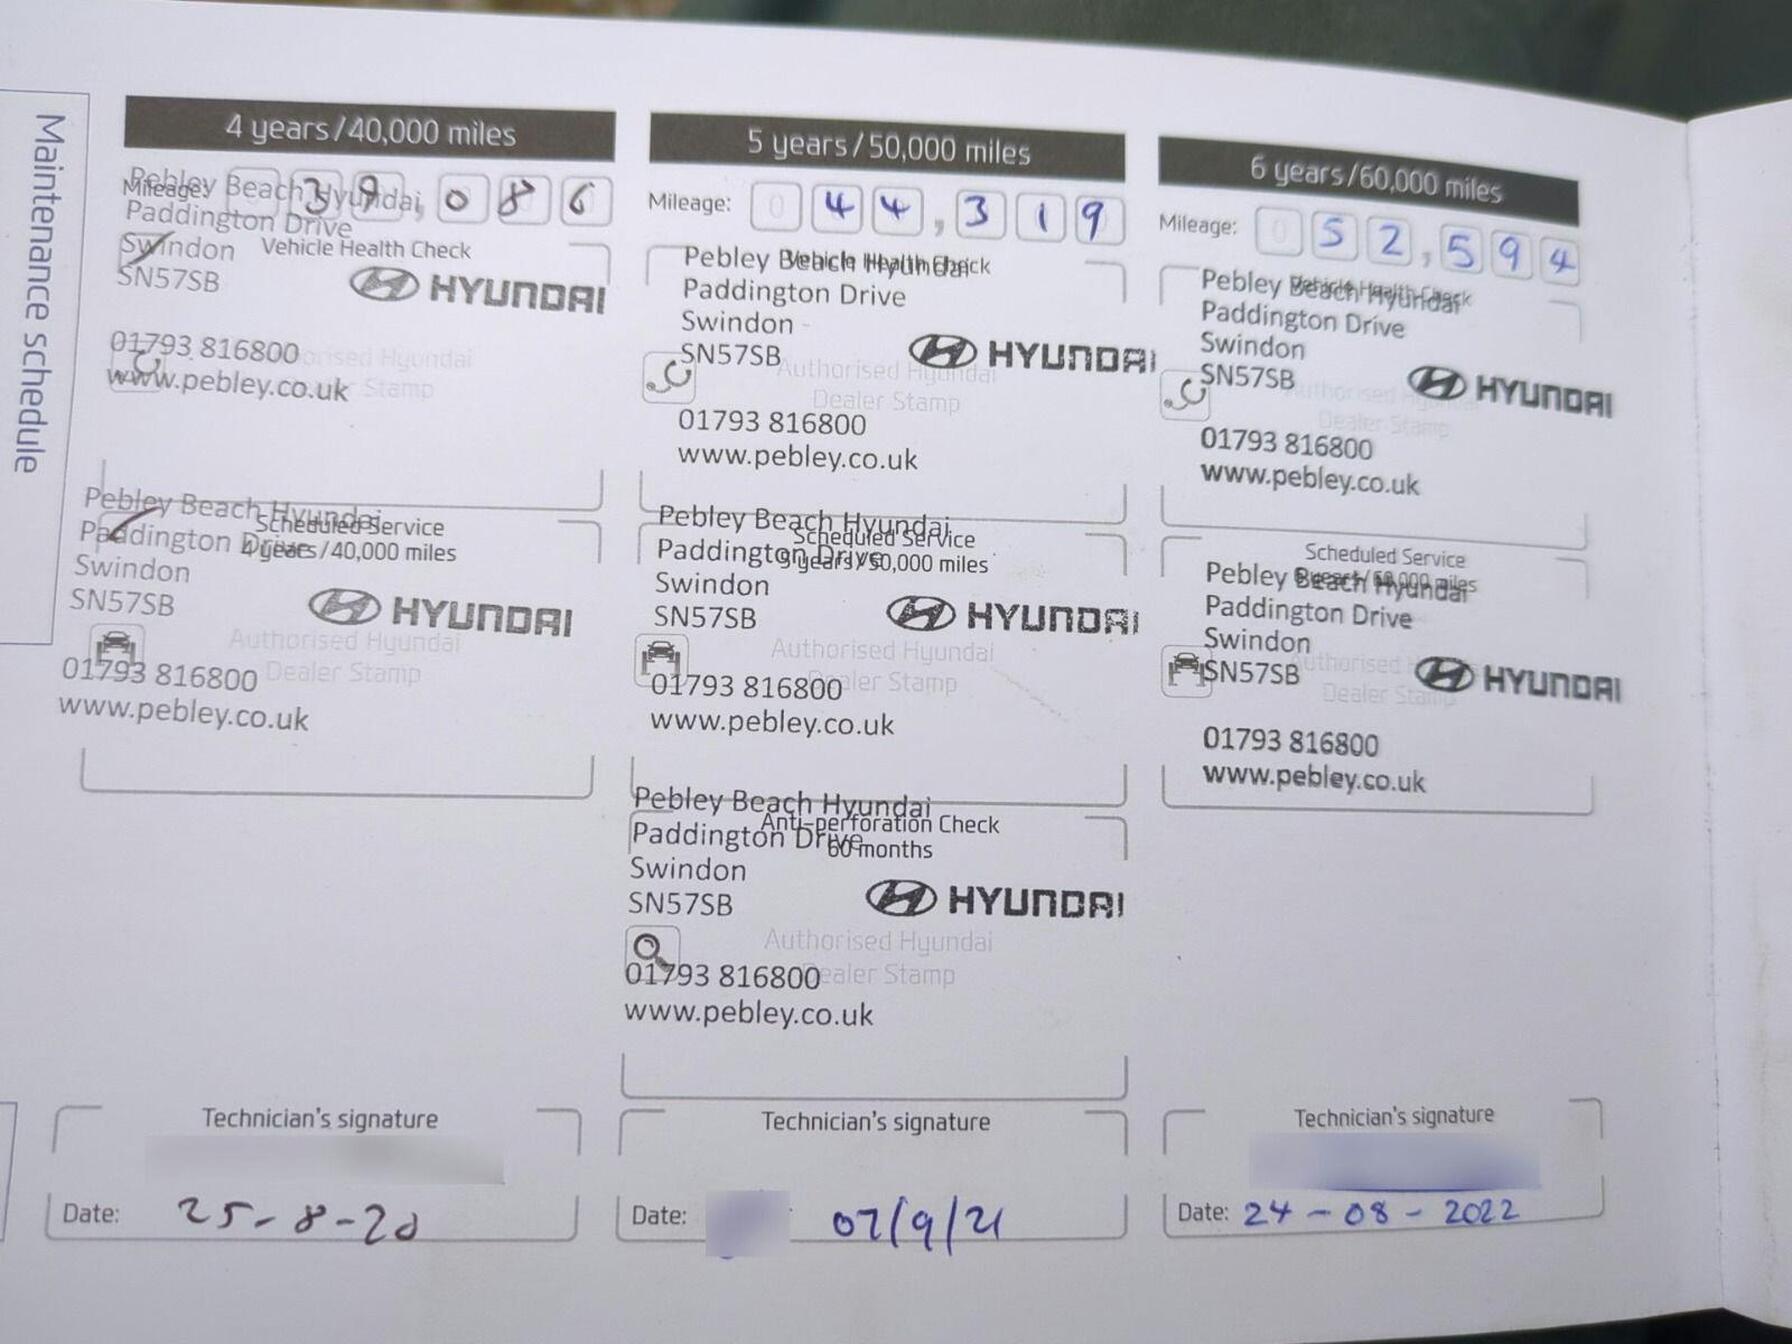 Maintenance schedule
4 years/40,000 miles
Mileage: 39,086
Pebley Beach Hyundai
Paddington Drive
Swindon
Vehicle Health Check
SN57SB
HYUNDAI
01793 816800
Authorised Hyundai
www.pebley.co.uk
Dealer Stamp
Pebley Beach Hyundai
Scheduled Service
Paddington Drive
4 years/40,000 miles
Swindon
SN57SB
HYUNDAI
Authorised Hyundai
01793 816800
Dealer Stamp
www.pebley.co.uk
Technician's signature
Date: 25-8-20
5 years/50,000 miles
Mileage: 044,319
Pebley Beach Hyundai
Vehicle Health Check
Paddington Drive
Swindon
SN57SB
HYUNDAI
Authorised Hyundai
Dealer Stamp
01793 816800
www.pebley.co.uk
Pebley Beach Hyundai
Scheduled Service
Paddington Drive
5 years/50,000 miles
Swindon
SN57SB
HYUNDAI
Authorised Hyundai
01793 816800
Dealer Stamp
www.pebley.co.uk
Pebley Beach Hyundai
Anti-perforation Check
Paddington Drive
60 months
Swindon
SN57SB
HYUNDAI
Authorised Hyundai
01793 816800
Dealer Stamp
www.pebley.co.uk
Technician's signature
Date: 07/9/21
6 years/60,000 miles
Mileage: 052,594
Pebley Beach Hyundai
Vehicle Health Check
Paddington Drive
Swindon
SN57SB
HYUNDAI
Authorised Hyundai
Dealer Stamp
01793 816800
www.pebley.co.uk
Scheduled Service
Pebley Beach Hyundai
6 years/60,000 miles
Paddington Drive
Swindon
SN57SB
HYUNDAI
Authorised
Dealer Stamp
01793 816800
www.pebley.co.uk
Technician's signature
Date: 24-08-2022